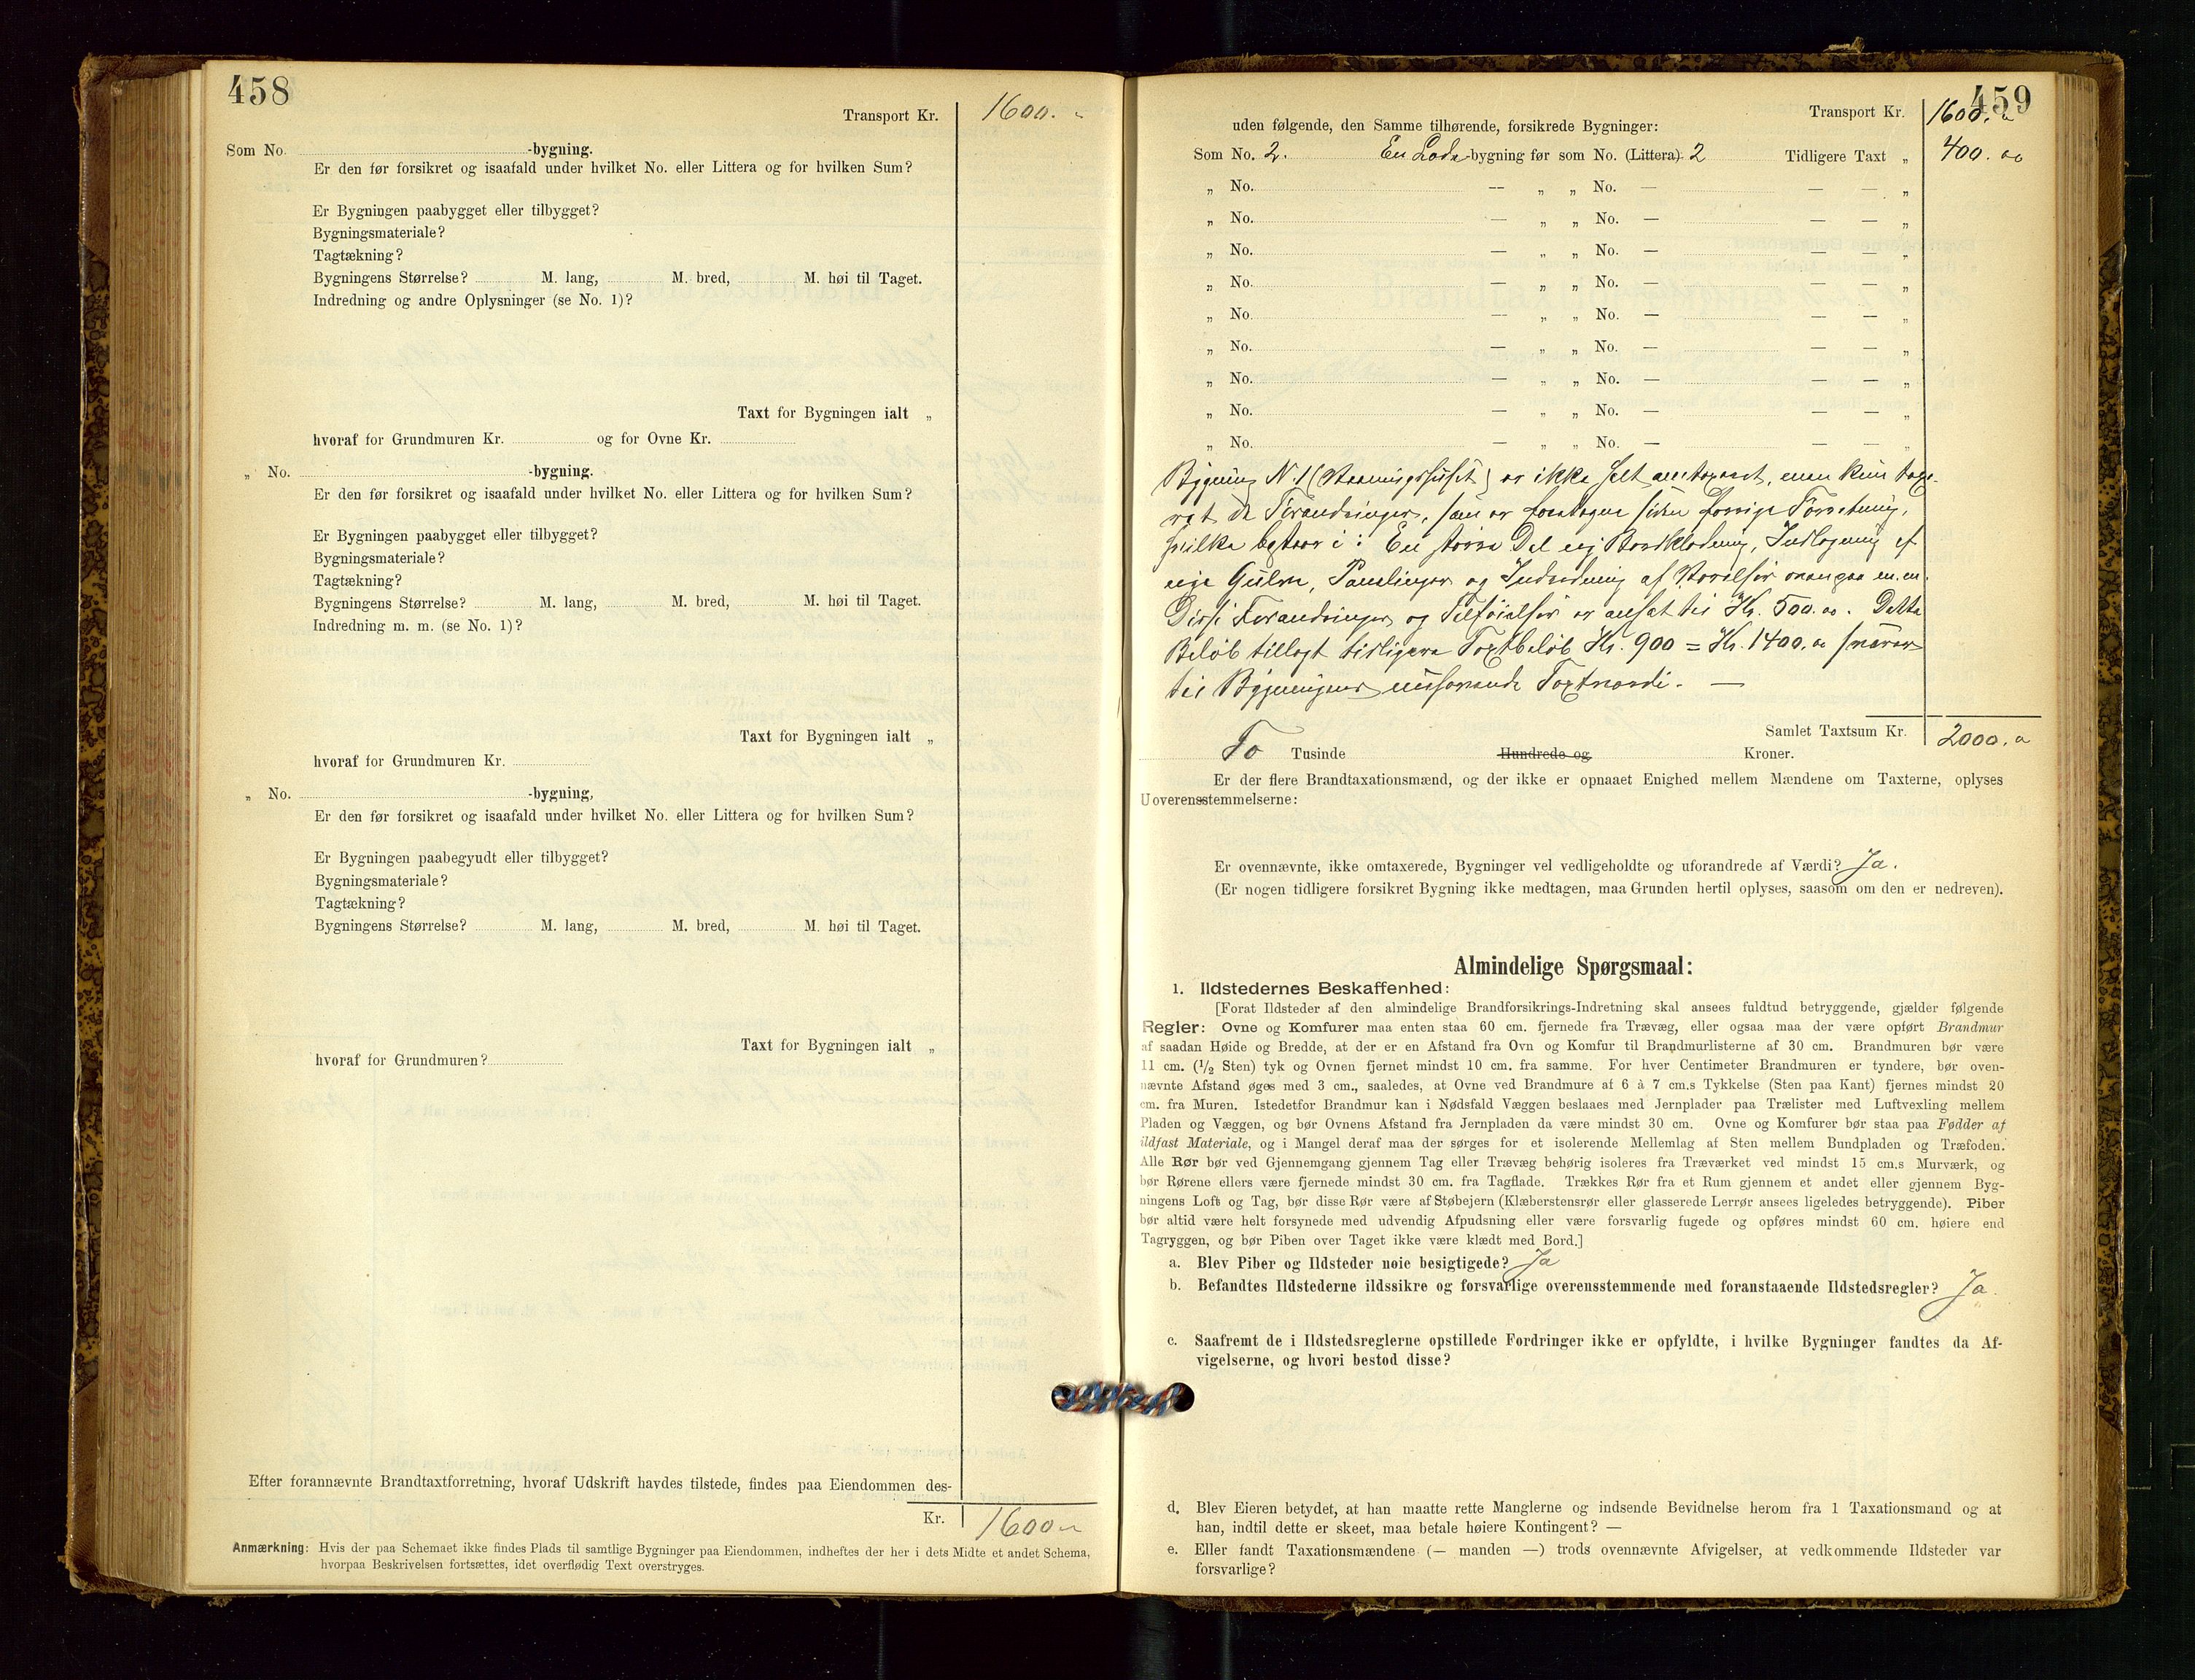 458
Transport Kr. 1600. "
Som No. -bygning.
Er den før forsikret og isaafald under hvilket No. eller Littera og for hvilken Sum?
Er Bygningen paabygget eller tilbygget?
Bygningsmateriale?
Tagtækning?
Bygningens Størrelse? M. lang, M. bred, M. høi til Taget.
Indredning og andre Oplysninger (se No. 1)?
Taxt for Bygningen ialt „
hvoraf for Grundmuren Kr. og for Ovne Kr.
„ No. -bygning.
Er den før forsikret og isaafald under hvilket No. eller Littera og for hvilken Sum?
Er Bygningen paabygget eller tilbygget?
Bygningsmateriale?
Tagtækning?
Bygningens Størrelse? M. lang, M. bred, M. høi til Taget.
Indredning m. m. (se No. 1)?
Taxt for Bygningen ialt „
hvoraf for Grundmuren Kr.
„ No. -bygning,
Er den før forsikret og isaafald under hvilket No. eller Littera og for hvilken Sum?
Er Bygningen paabegyudt eller tilbygget?
Bygningsmateriale?
Tagtækning?
Bygningens Størrelse? M. lang, M. bred, M. høi til Taget.
Taxt for Bygningen ialt „
hvoraf for Grundmuren?
Efter forannævnte Brandtaxtforretning, hvoraf Udskrift havdes tilstede, findes paa Eiendommen des-
Kr. 1600 "
Anmærkning: Hvis der paa Schemaet ikke findes Plads til samtlige Bygninger paa Eiendommen, indheftes der her i dets Midte et andet Schema,
hvorpaa Beskrivelsen fortsættes, idet overflødig Text overstryges.
459
Transport Kr. 1600. "
uden følgende, den Samme tilhørende, forsikrede Bygninger:
Som No. 2. En Lade-bygning før som No. (Littera) 2 Tidligere Taxt „ 400. oo
„ No. — „ „ No. — — — „
„ No. — „ „ No. — — — „
„ No. — „ „ No. — — — „
„ No. — „ „ No. — — — „
„ No. — „ „ No. — — — „
„ No. — „ „ No. — — — „
„ No. — „ „ No. — — — „
„ No. — „ „ No. — — — „
„ No. — „ „ No. — — — „
Bygning N. 1 (Vaaningshuset) er ikke helt omtaxeret, men kun taxe-
ret de Forandringer, som er foretagne siden forrige Forretning,
hvilke bestaar i: En større Del ny Bordklædning, Indlægning af
nye Gulve, Panelinger og Indredning af Værelser ovenpaa m.m.
Disse Forandringer og Tilføielser er ansat til Kr. 500.oo. Dette
Beløb tillagt tidligere Taxtbeløb Kr. 900 = Kr. 1400.oo svarer
til Bygningens nuværende Taxtværdi. —
Samlet Taxtsum Kr. 2000. "
To Tusinde Hundrede og Kroner.
Er der flere Brandtaxationsmænd, og der ikke er opnaaet Enighed mellem Mændene om Taxterne, oplyses
Uoverensstemmelserne:
Er ovennævnte, ikke omtaxerede, Bygninger vel vedligeholdte og uforandrede af Værdi? Ja.
(Er nogen tidligere forsikret Bygning ikke medtagen, maa Grunden hertil oplyses, saasom om den er nedreven).
Almindelige Spørgsmaal:
1. Ildstedernes Beskaffenhed:
[Forat Ildsteder af den almindelige Brandforsikrings-Indretning skal ansees fuldtud betryggende, gjælder følgende
Regler: Ovne og Komfurer maa enten staa 60 cm. fjernede fra Trævæg, eller ogsaa maa der være opført Brandmur
af saadan Høide og Bredde, at der er en Afstand fra Ovn og Komfur til Brandmurlisterne af 30 cm. Brandmuren bør være
11 cm. (½ Sten) tyk og Ovnen fjernet mindst 10 cm. fra samme. For hver Centimeter Brandmuren er tyndere, bør oven-
nævnte Afstand øges med 3 cm., saaledes, at Ovne ved Brandmure af 6 à 7 cm.s Tykkelse (Sten paa Kant) fjernes mindst 20
cm. fra Muren. Istedetfor Brandmur kan i Nødsfald Væggen beslaaes med Jernplader paa Trælister med Luftvexling mellem
Pladen og Væggen, og bør Ovnens Afstand fra Jernpladen da være mindst 30 cm. Ovne og Komfurer bør staa paa Fødder af
ildfast Materiale, og i Mangel deraf maa der sørges for et isolerende Mellemlag af Sten mellem Bundpladen og Træfoden.
Alle Rør bør ved Gjennemgang gjennem Tag eller Trævæg behørig isoleres fra Træværket ved mindst 15 cm.s Murværk, og
bør Rørene ellers være fjernede mindst 30 cm. fra Tagflade. Trækkes Rør fra et Rum gjennem et andet eller gjennem Byg-
ningens Loft og Tag, bør disse Rør være af Støbejern (Klæberstensrør eller glasserede Lerrør ansees ligeledes betryggende). Piber
bør altid være helt forsynede med udvendig Afpudsning eller være forsvarlig fugede og opføres mindst 60 cm. høiere end
Tagryggen, og bør Piben over Taget ikke være klædt med Bord.]
a. Blev Piber og Ildsteder nøie besigtigede? Ja
b. Befandtes Ildstederne ildssikre og forsvarlige overensstemmende med foranstaaende Ildstedsregler? Ja.
c. Saafremt de i Ildstedsreglerne opstillede Fordringer ikke er opfyldte, i hvilke Bygninger fandtes da Af-
vigelserne, og hvori bestod disse?
d. Blev Eieren betydet, at han maatte rette Manglerne og indsende Bevidnelse herom fra 1 Taxationsmand og at
han, indtil dette er skeet, maa betale høiere Kontingent? —
e. Eller fandt Taxationsmændene (— manden —) trods ovennævnte Afvigelser, at vedkommende Ildsteder var
forsvarlige?